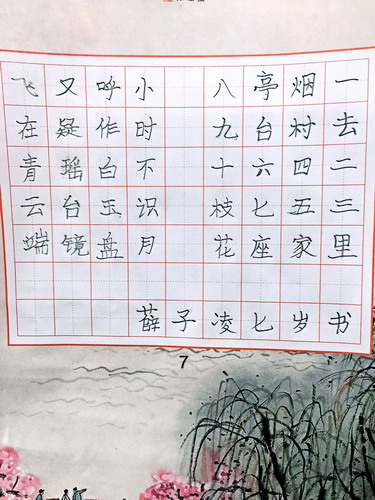 一去二三里
烟村四五家
亭台六七座
八九十枝花
小时不识月
呼作白玉盘
又疑瑶台镜
飞在青云端
薛子凌七岁书
7